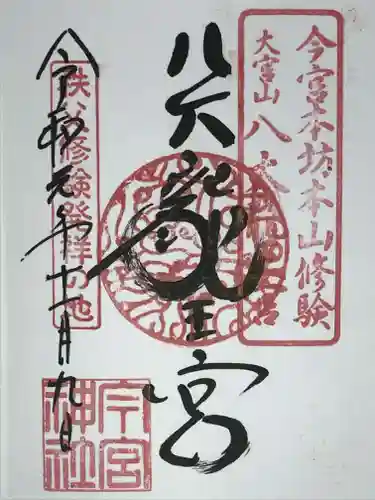 今宮本坊本山修験
大宮山八大龍王宮
八大龍王宮
秩父修験発祥の地
令和元年十一月九日
今宮神社